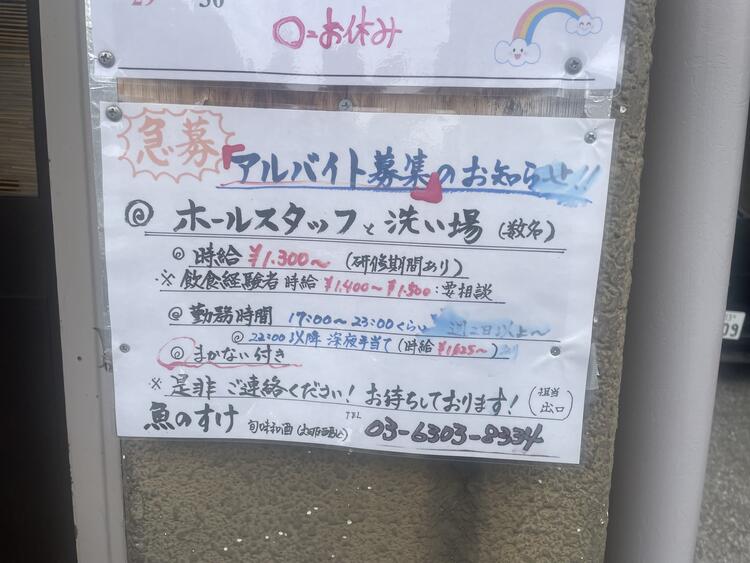 29 30
○=お休み
急募
『アルバイト募集』のお知らせ!!
◎ ホールスタッフと洗い場 (数名)
◎ 時給 ¥1.300〜 (研修期間あり)
※ 飲食経験者 時給 ¥1.400〜¥1.500:要相談
◎ 勤務時間 17:00〜23:00くらい 週二日以上〜
◎ 22:00以降 深夜手当て (時給 ¥1625〜) あり
◎ まかない付き
※ 是非ご連絡ください! お待ちしております! (担当 出口)
魚のすけ 旬味和酒 TEL 03-6303-8334
09